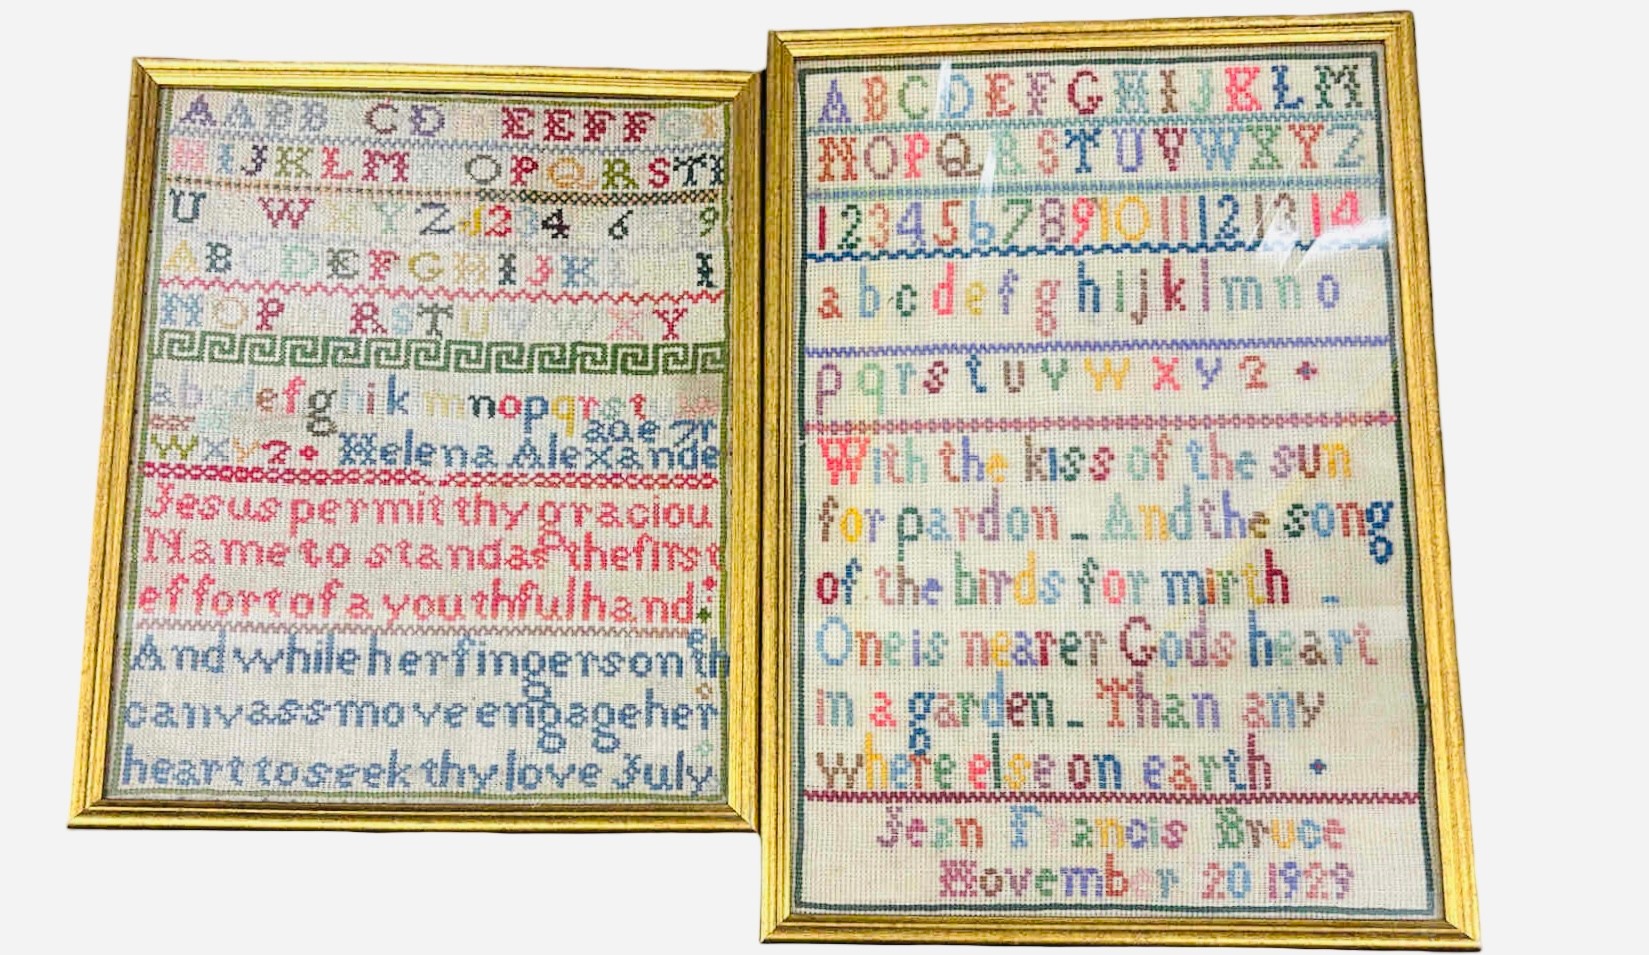 A A B B C D E E F F G
H I J K L M O P Q R S T
U W X Y Z 1 2 3 4 6 8 9
A B C D E F G H I J K L I
N O P R S T U V W X Y
a b c d e f g h i k m n o p q r s t
age 7 r
w x y z Helena Alexande
Jesus permit thy graciou
Name to stand as the first
effort of a youthful hand
And while her fingers on th
canvass move engage her
heart to seek thy love July
A B C D E F G H I J K L M
N O P Q R S T U V W X Y Z
1 2 3 4 5 6 7 8 9 10 11 12 13 14
a b c d e f g h i j k l m n o
p q r s t u v w x y z +
With the kiss of the sun
for pardon _ And the song
of the birds for mirth _
One is nearer Gods heart
in a garden _ Than any
where else on earth +
Jean Francis Bruce
November 20 1929